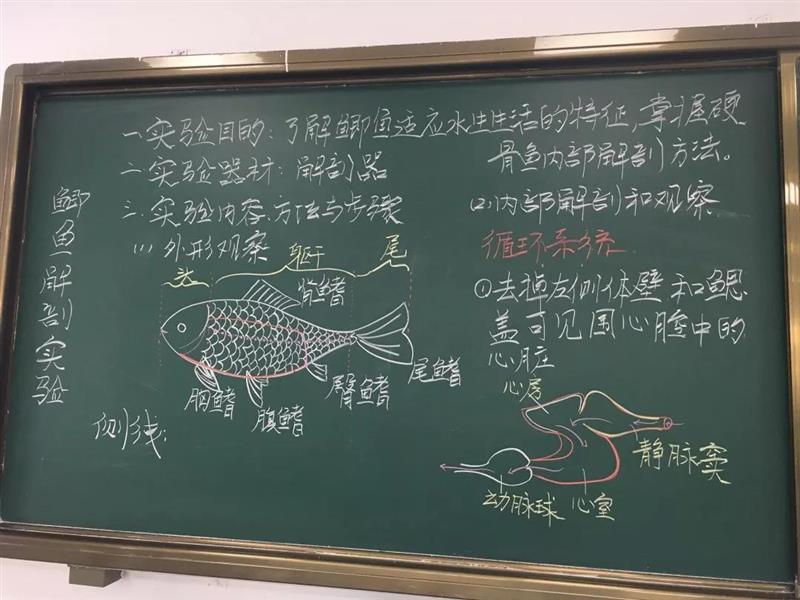 鲫鱼解剖实验
一.实验目的:了解鲫鱼适应水生生活的特征,掌握硬
骨鱼内部解剖方法。
二.实验器材:解剖器
三.实验内容.方法与步骤
(1)外形观察
头 躯干 尾
背鳍
胸鳍 腹鳍 臀鳍 尾鳍
侧线:
(2)内部解剖和观察
循环系统
①去掉左侧体壁和鳃
盖可见围心腔中的
心脏
心房
静脉窦
动脉球 心室